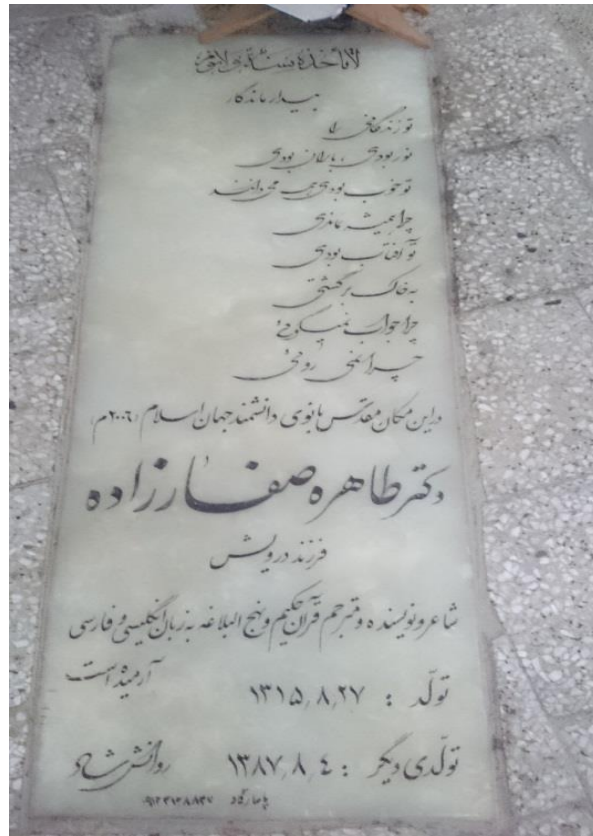 لا تأخذه سنة و لا نوم
بیدار ماندگار
تو زندگانی را
نور بودی، باران بودی
تو خوب بودی همه می دانند
چرا همیشه نماندی
تو آفتاب بودی
به خاک برگشتی
چرا جواب نمیگوئی
چرا نمی روئی
در این مکان مقدس بانوی دانشمند جهان اسلام (۲۰۰۶م)
دکتر طاهره صفارزاده
فرزند درویش
شاعر و نویسنده و مترجم قرآن حکیم و نهج البلاغه به زبان انگلیسی و فارسی
آرمیده است
تولّد : ۱۳۱۵٫۸٫۲۷
تولّدی دیگر : ۱۳۸۷٫۸٫۴ روانش شاد